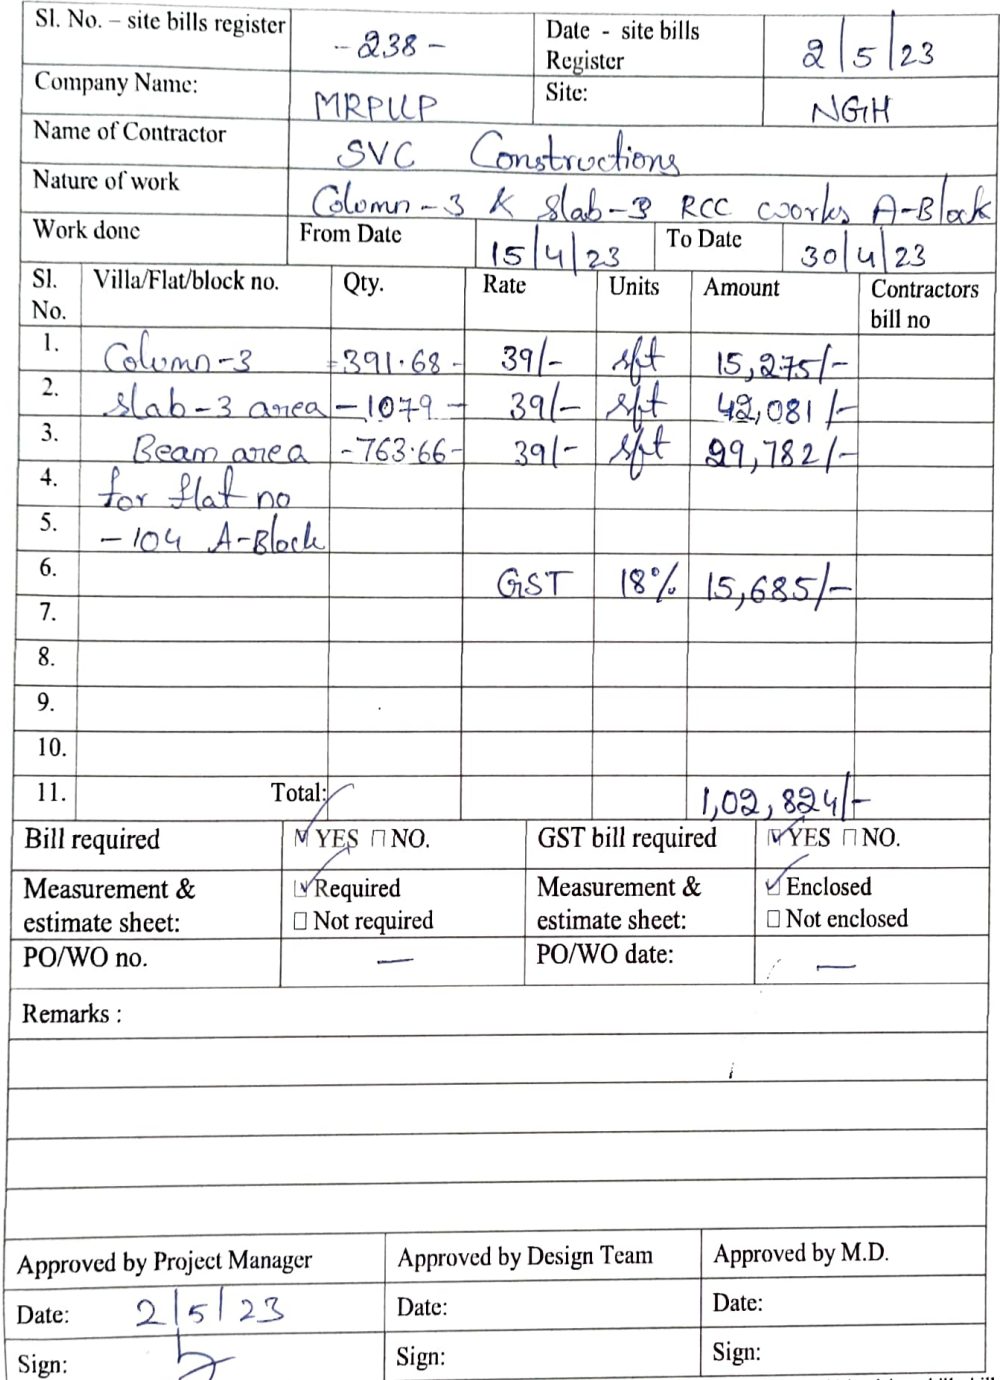 Sl. No. – site bills register -238- Date - site bills Register 2/5/23
Company Name: MRPLLP Site: NGH
Name of Contractor SVC Constructions
Nature of work Column-3 & Slab-3 RCC works A-Block
Work done From Date 15/4/23 To Date 30/4/23
Sl. No. Villa/Flat/block no. Qty. Rate Units Amount Contractors bill no
1. Column-3 =391.68- 39/- sft 15,275/-
2. Slab-3 area -1079- 39/- sft 42,081/-
3. Beam area -763.66- 39/- sft 29,782/-
4. for flat no
5. -104 A-Block
6. GST 18% 15,685/-
7.
8.
9.
10.
11. Total: 1,02,824/-
Bill required ☑ YES ☐ NO. GST bill required ☑ YES ☐ NO.
Measurement & estimate sheet: ☑ Required ☐ Not required Measurement & estimate sheet: ☑ Enclosed ☐ Not enclosed
PO/WO no. — PO/WO date: —
Remarks :
Approved by Project Manager Approved by Design Team Approved by M.D.
Date: 2/5/23 Date: Date:
Sign: Sign: Sign: